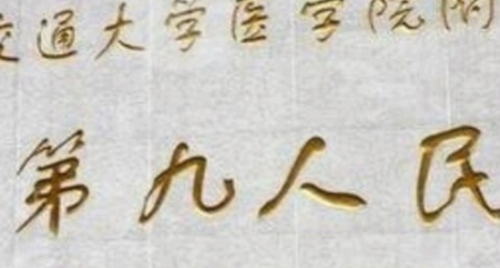 交通大学医学院附
第九人民